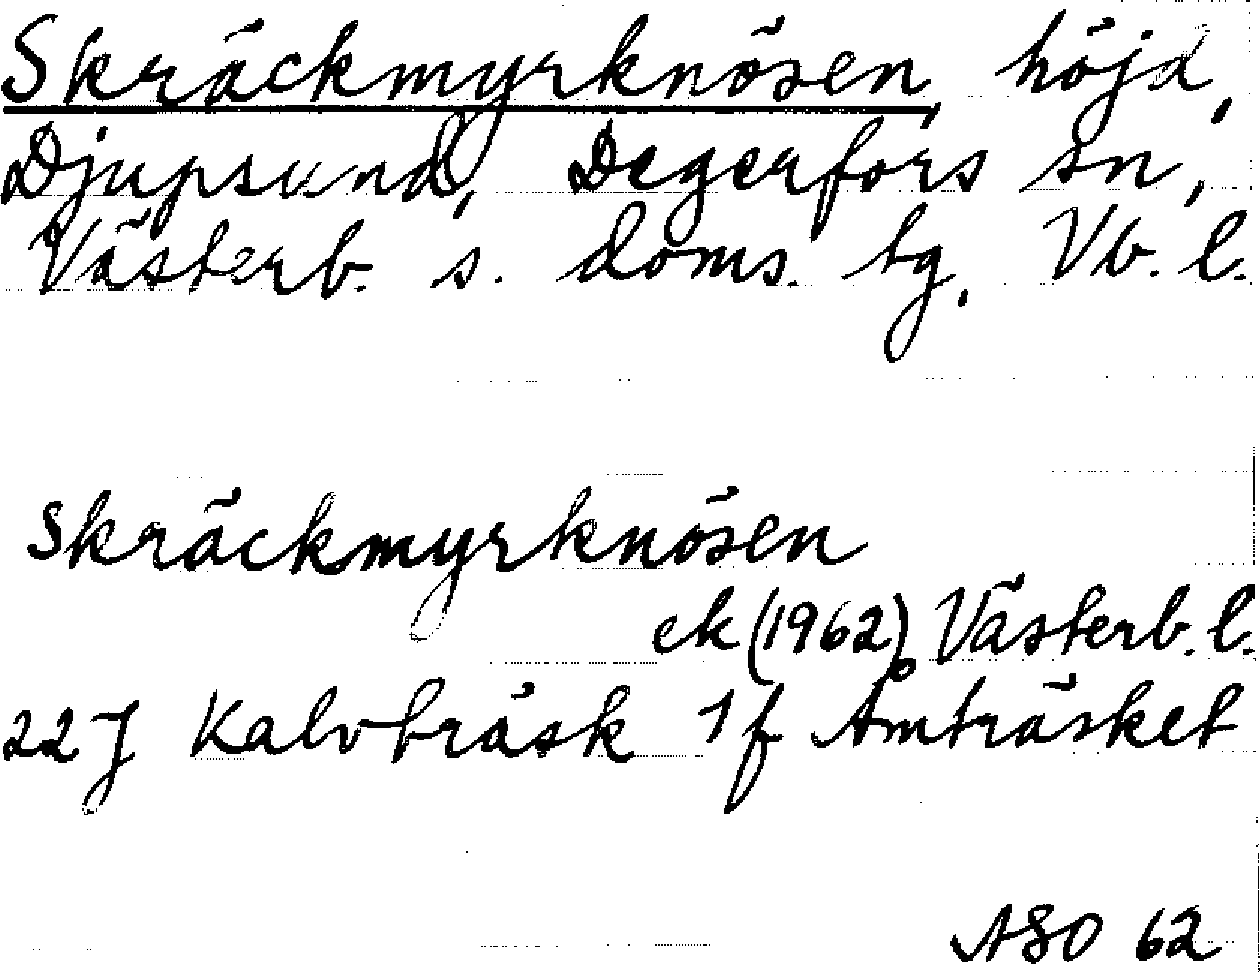 Skräckmyrknösen, höjd,
Djupsund, Degerfors sn,
Västerb. s. doms. tg, Vb. l.
Skräckmyrknösen
ek (1962) Västerb. l.
22 J Kalvträsk 1 f Åmträsket
ASO 62